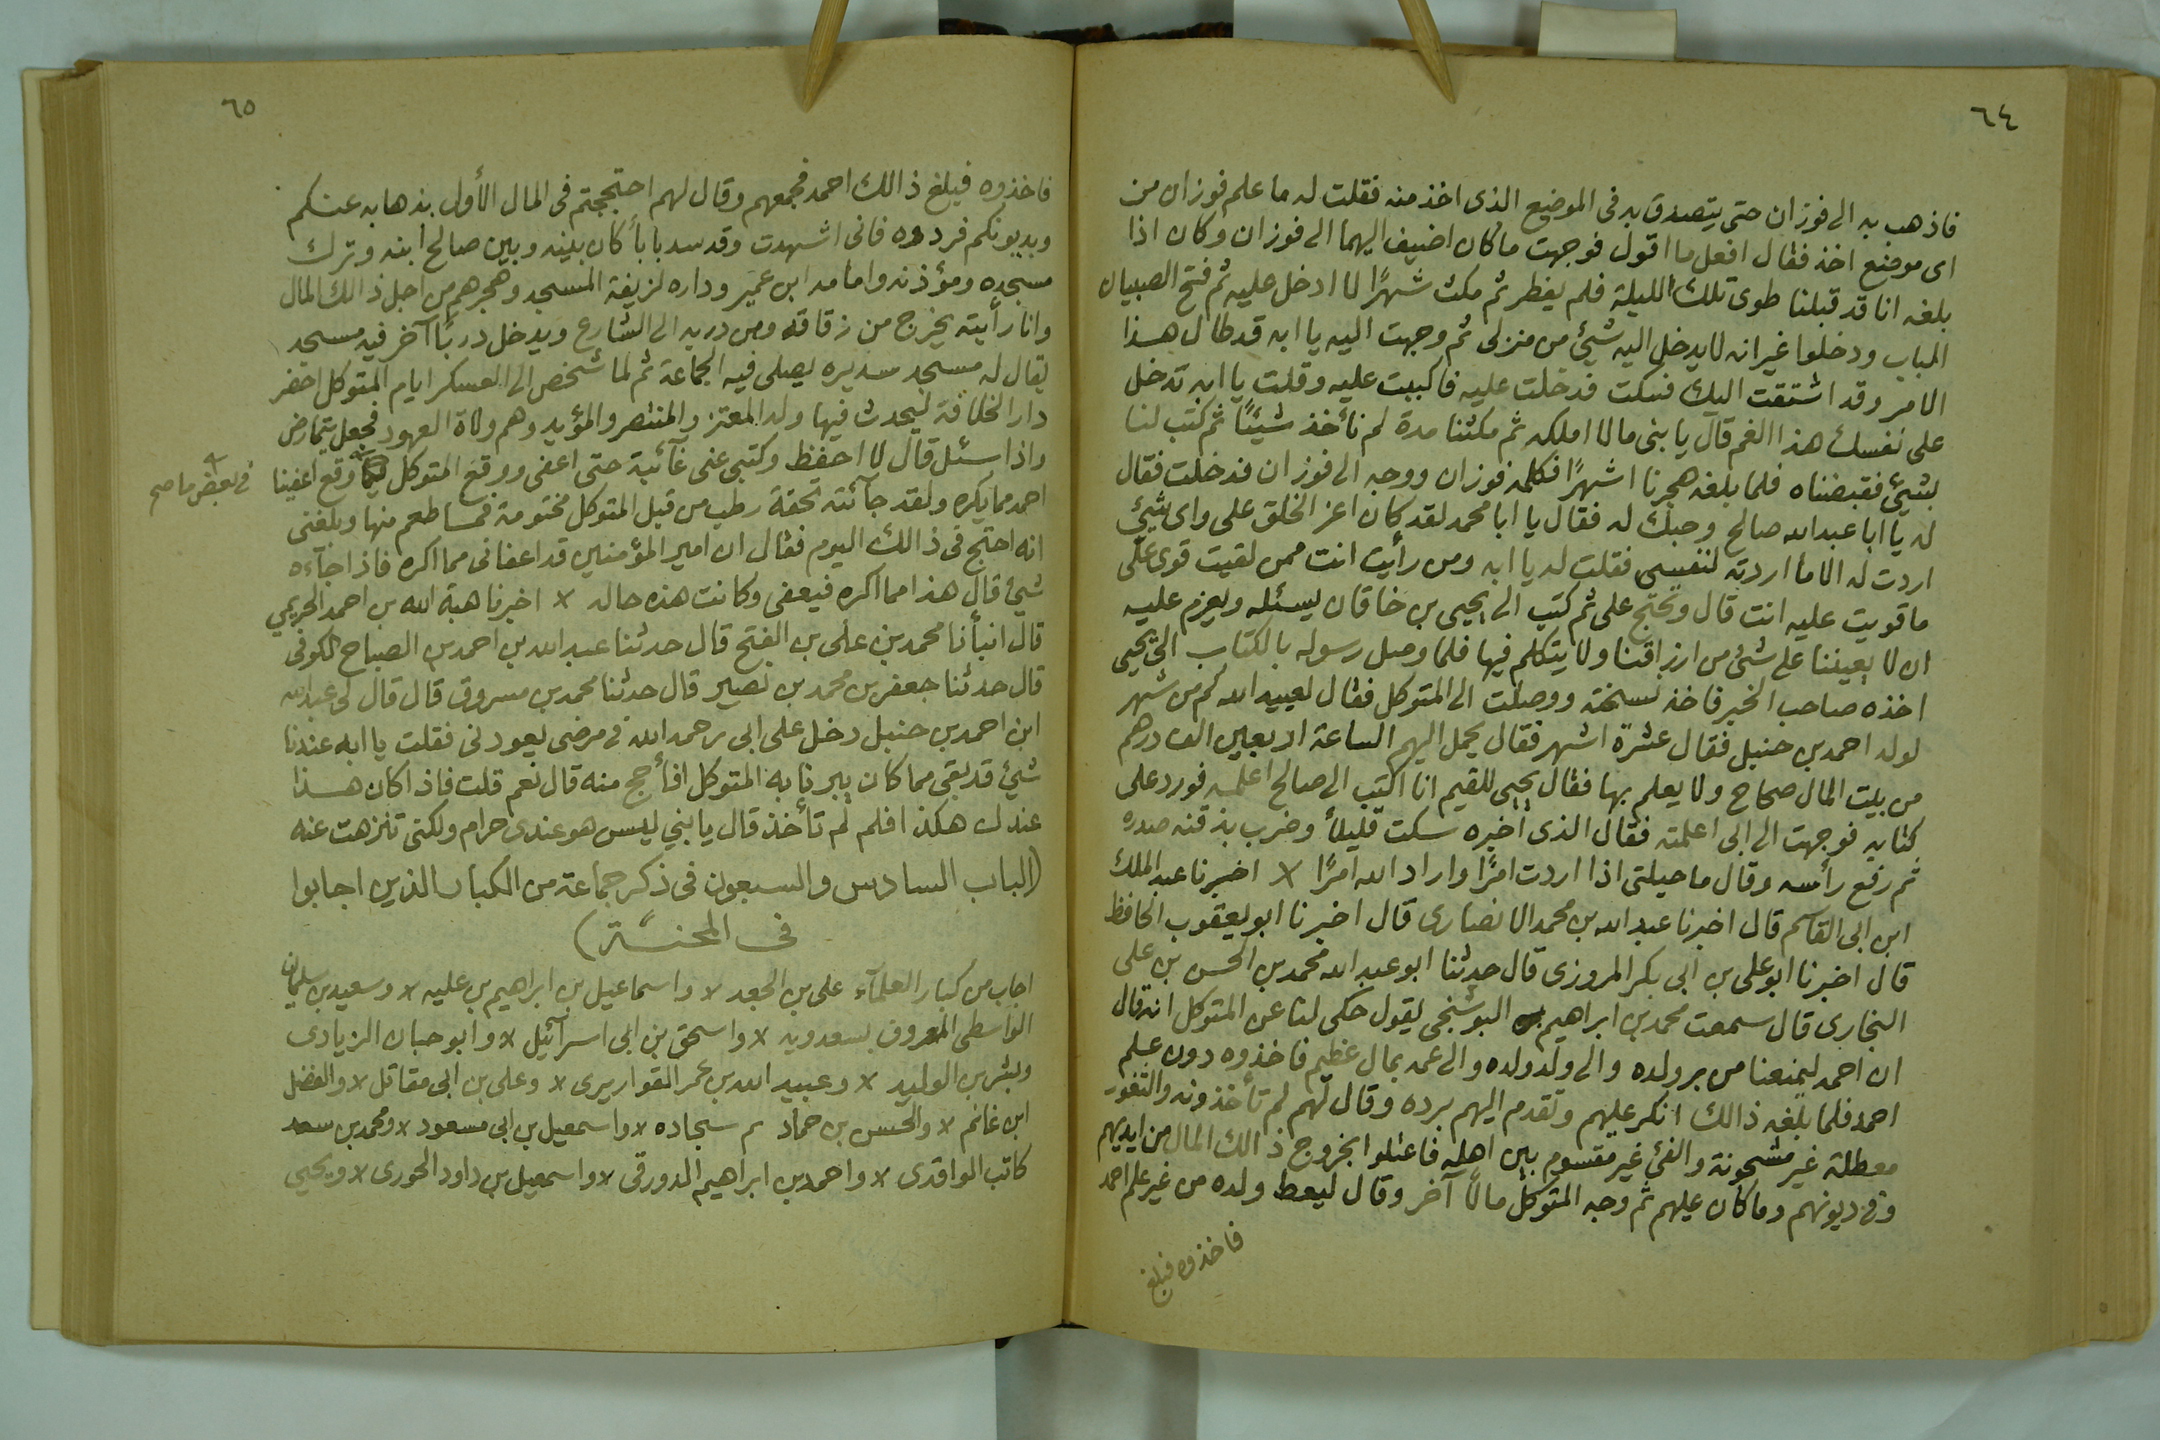 ٦٤
فاذهب به الى فوزان حتى يتصدق به فى الموضع الذى اخذ منه فقلت له ما علم فوزان من
اى موضع اخذ فقال افعل ما اقول فوجهت ما كان اضيف اليهما الى فوزان وكان اذا
بلغه انا قد قبلنا طوى تلك الليلة فلم يفطر ثم مكث شهرًا لا ادخل عليه ثم فتح الصبيان
الباب ودخلوا غير انه لا يدخل اليه شيئ من منزلى ثم وجهت اليه يا ابه قد طال هذا
الامر وقد اشتقت اليك فسكت فدخلت عليه فاكببت عليه وقلت يا ابه تدخل
على نفسك هذا الغم قال يا بنى مالا املكه ثم مكثنا مدة لم نأخذ شيئًا ثم كتب لنا
بشيئ فقبضناه فلما بلغه هجرنا اشهرًا فكلمه فوزان ووجه الى فوزان فدخلت فقال
له يا ابا عبدالله صالح وحبك له فقال يا ابا محمد لقد كان اعز الخلق على واى شيئ
اردت له الا ما اردته لنفسى فقلت له يا ابه ومن رأيت انت ممن لقيت قوى على
ما قويت عليه انت قال وتحتج على ثم كتب الى يحيى بن خاقان يسئله ويعزم عليه
ان لا يعيننا على شئ من ارزاقنا ولا يتكلم فيها فلما وصل رسوله بالكتاب الى يحيى
اخذه صاحب الخبر فاخذ نسخته ووصلت الى المتوكل فقال لعبيد الله كم من شهر
لولد احمد بن حنبل فقال عشرة اشهر فقال يحمل اليهم الساعة اربعين الف درهم
من بيت المال صحاح ولا يعلم بها فقال يحيى للقيم انا اكتب الى صالح اعلمه فورد على
كتابه فوجهت الى ابى اعلمته فقال الذى اخبره سكت قليلاً وضرب بذقنه صدره
ثم رفع رأسه وقال ما حيلتى اذا اردت امرًا واراد الله امرًا × اخبرنا عبد الملك
ابن ابى القاسم قال اخبرنا عبد الله بن محمد الانصارى قال اخبرنا ابو يعقوب الحافظ
قال اخبرنا ابو على بن ابى بكر المروزى قال حدثنا ابو عبد الله محمد بن الحسن بن على
البخارى قال سمعت محمد بن ابراهيم البوشنجى يقول حكى لنا عن المتوكل انه قال
ان احمد ليمنعنا من بر ولده والى ولد ولده والى عمه بمال عظيم فاخذوه دون علم
احمد فلما بلغه ذالك انكر عليهم وتقدم اليهم برده وقال لهم لم تأخذونه والثغور
معطلة غير مشحونة والفئ غير مقسوم بين اهله فاعتلوا بخروج ذالك المال من ايديهم
وفى ديونهم وما كان عليهم ثم وجه المتوكل مالاً آخر وقال ليعط ولده من غير علم احمد
فاخذوه فبلغ
٦٥
فاخذوه فبلغ ذالك احمد فجمعهم وقال لهم احتججتم فى المال الأول بذهابه عنكم
وبديونكم فردوه فانى اشهدت وقد سد بابًا كان بينه وبين صالح ابنه وترك
مسجده ومؤذنه وامامه ابن عمير وداره لزيقة المسجد وهجرهم من اجل ذالك المال
وانا رأيته يخرج من زقاقه ومن دربه الى الشارع ويدخل دربًا آخر فيه مسجد
يقال له مسجد سديره يصلى فيه الجماعة ثم لما شخص الى العسكر ايام المتوكل احضر
دار الخلافة ليحدث فيها ولد المعتز والمنتصر والمؤيد وهم ولاة العهود فجعل يتمارض
واذا سئل قال لا احفظ وكتبى عنى غائبة حتى اعفى ووقع المتوكل وقع اعفينا
فى بعض ما صح
احمد مما يكره ولقد جائته تحفة رطب من قبل المتوكل مختومة فما طعم منها وبلغنى
انه احتج فى ذالك اليوم فقال ان امير المؤمنين قد اعفانى مما اكره فاذا جآءه
شيئ قال هذا مما اكره فيعفى وكانت هذه حاله × اخبرنا هبة الله بن احمد الحريمي
قال انبأنا محمد بن على بن الفتح قال حدثنا عبد الله بن احمد بن الصباح الكوفى
قال حدثنا جعفر بن محمد بن نصير قال حدثنا محمد بن مسروق قال قال لى عبدالله
ابن احمد بن حنبل دخل على ابى رحمه الله فى مرضى يعودنى فقلت يا ابه عندنا
شيئ قد بقى مما كان يبرنا به المتوكل افأحج منه قال نعم قلت فاذا كان هذا
عندك هكذا فلم لم تأخذ قال يا بني ليس هو عندى حرام ولكنى تنزهت عنه
(الباب السادس والسبعون فى ذكر جماعة من الكبار الذين اجابوا
فى المحنة)
اجاب من كبار العلمآء على بن الجعد × واسماعيل بن ابراهيم بن عليه × وسعيد بن سليمان
الواسطى المعروف بسعدويه × واسحق بن ابى اسرآئيل × وابو حسان الزيادى
وبشر بن الوليد × وعبيد الله بن عمر القواريرى × وعلى بن ابى مقاتل × والفضل
ابن غانم × والحسن بن حماد سجاده × واسمعيل بن ابى مسعود × ومحمد بن سعد
كاتب الواقدى × واحمد بن ابراهيم الدورقى × واسمعيل بن داود الحورى × ويحيي